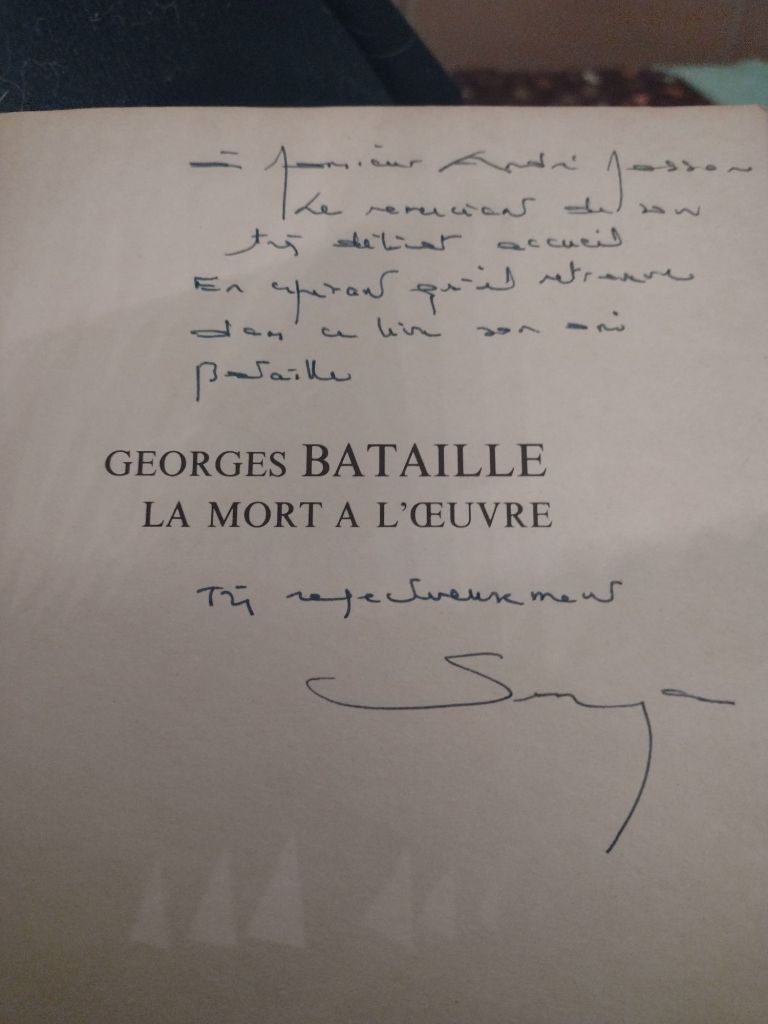 À Monsieur André Masson
Le remerciant de son
très délicat accueil
En espérant qu'il retrouve
dans ce livre son ami
Bataille
GEORGES BATAILLE
LA MORT A L'ŒUVRE
Très respectueusement
Surya